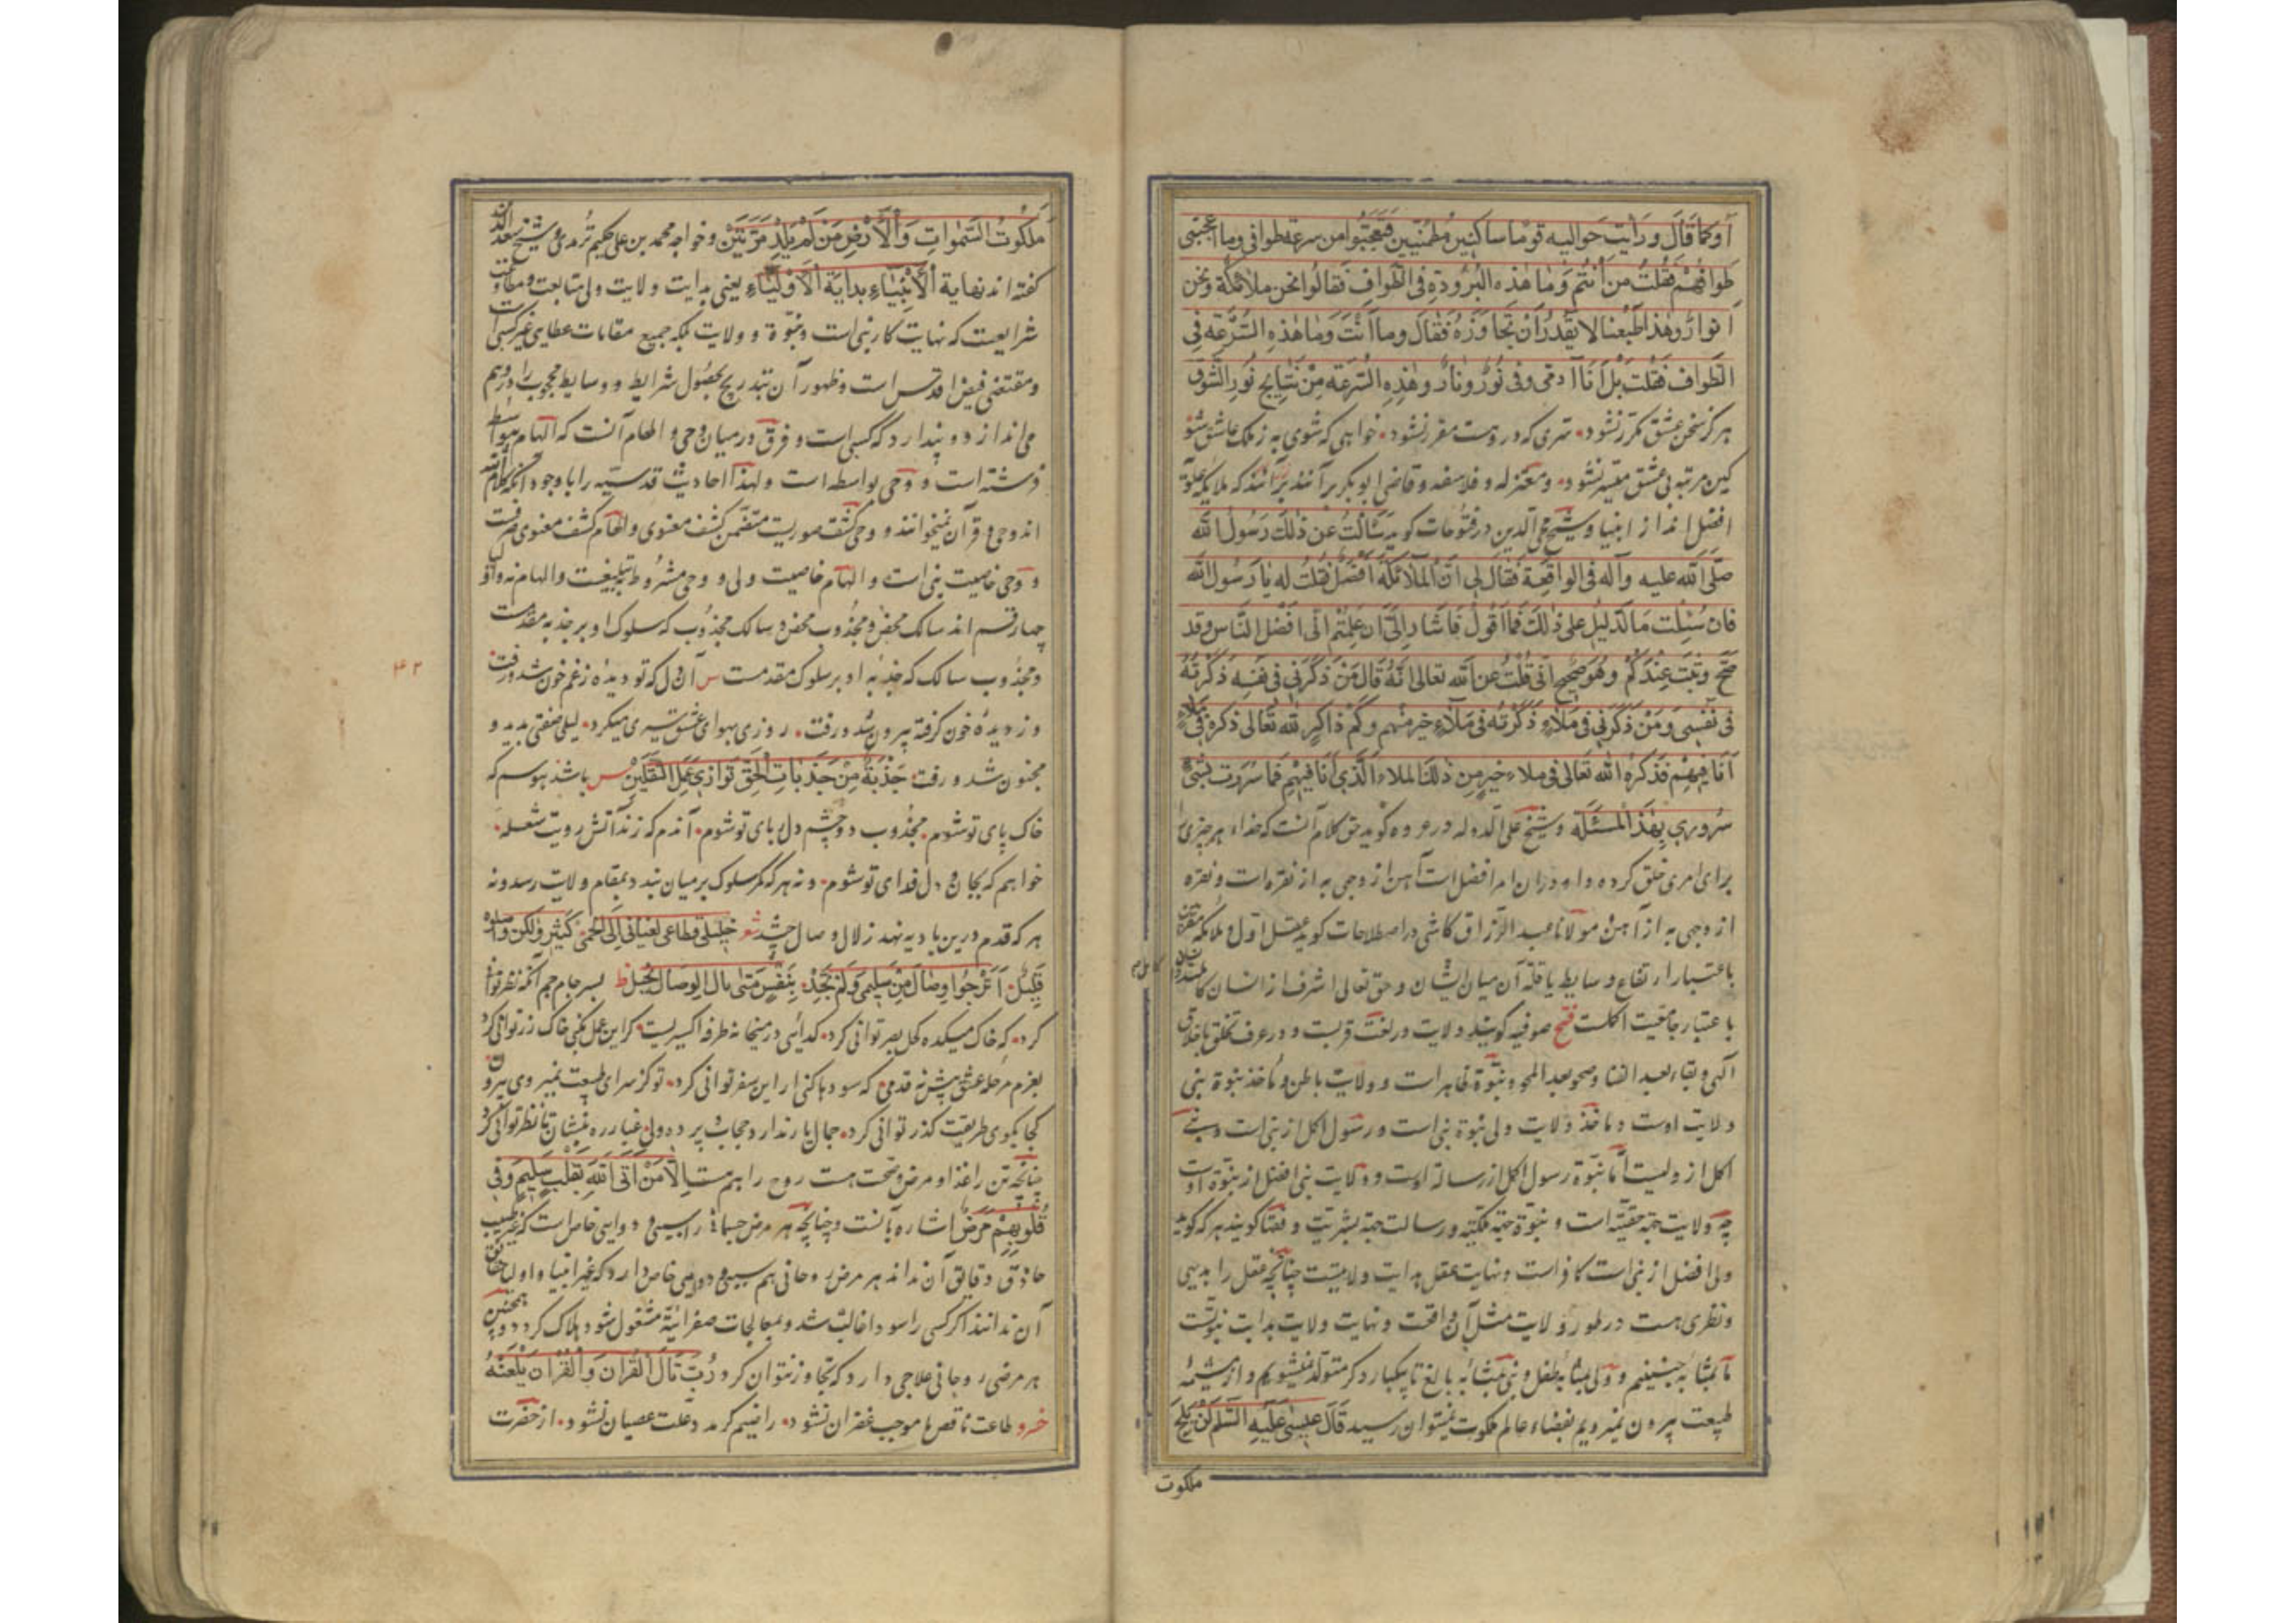 او کما قال و رایت حوالیه قوما ساکنین مطمئنین فتعجبوا من سرعة طوافی وما اعجبنی
طوافهم فقلت من انتم وما هذه البرودة فی الطواف فقالوا نحن ملائکة ونحن
انوار وهذا طبعنا لا یقدر ان تجاوزه فقال وما انت وما هذه السرعة فی
الطواف فقلت بل انا آدمی وفی نور ونار وهذه السرعة من نتایج نور الشوق
هرگز سخن عشق مکرر نشود سری که درو هست مقرر نشود خواهی که شوی به ز ملک عاشق شو
کین مرتبه بی عشق میسر نشود و معتزله و فلاسفه و قاضی ابو بکر برآنند که ملایکه علویه
افضل اند از انبیا و شیخ محی الدین در فتوحات گوید سألت عن ذلک رسول الله
صلی الله علیه وآله فی الواقعة فقال لی ان الملائکة افضل فقلت له یا رسول الله
فان سئلت ما الدلیل علی ذلک فما اقول فاشار الی ان علمتم انی افضل الناس وقد
صح وثبت عندکم وهو صحیح انی قلت عن الله تعالی انه قال من ذکرنی فی نفسه ذکرته
فی نفسی ومن ذکرنی فی ملاء ذکرته فی ملاء خیر منهم وکم ذاکر لله تعالی ذکره فی ملاء
انا فیهم فذکره الله تعالی فی ملاء خیر من ذلک الملاء الذی انا فیهم فما سررت بشئ
سروری بهذه المسئلة و شیخ علاء الدوله در عروه گوید حق کلام آنست که خدا هر چیزی
برای امری خلق کرده و او در آن امر افضل است آهن از وجهی به از نقره است و نقره
از وجهی به از آهن مولانا عبد الرزاق کاشی در اصطلاحات گوید عقل اول و ملائکه مقربین
باعتبار ارتفاع وسایط یا قلة آن میان ایشان و حق تعالی اشرف از انسان کاملند
باعتبار جامعیت اکملست فتح صوفیه گویند ولایت در لغت قربت و در عرف تخلق باخلاق
الهی و بقاء بعد الفنا و صحو بعد المحو و نبوة ظاهر است و ولایت باطن و ماخذ نبوة نبی
ولایت اوست و ماخذ ولایت ولی نبوة نبی است و رسول اکمل از نبی است و نبی
اکمل از ولیست اما نبوة رسول اکمل از رسالة اوست و ولایت نبی افضل از نبوة اوست
چه ولایت جهة حقیته است و نبوة جهة ملکیه و رسالت جهة بشریت و فقها گویند هر که گوید
ولی افضل از نبی است کافر است و نهایت عقل بدایت ولایتست چنانچه عقل را بدیهی
و نظری هست در طور ولایت مثل آن واقعست و نهایت ولایت بدایت نبوتست
ما بمثابه جنینیم و ولی بمثابه طفل و نبی بمثابه بالغ تا یکبار دگر متولد نمیشویم و از مشیمه
طبیعت بیرون نمیرویم بفضاء عالم ملکوت نمیتوان رسید قال عیسی علیه السلم لن یلج
ملکوت
ملکوت السموات والارض من لم یلد مرتین و خواجه محمد بن علی حکیم ترمدی و شیخ سعد الدین
گفته اند نهایة الانبیاء بدایة الاولیاء یعنی بدایت ولایت ولی متابعت
شرایعست که نهایت کار نبی است و نبوة و ولایت بلکه جمیع مقامات عطایی غیر کسبی است
و مقتضی فیض اقدس است و ظهور آن بتدریج بحصول شرایط و وسایط محجوب را در وهم
می اندازد و پندارد که کسبی است و فرق در میان وحی و الهام آنست که الهام بیواسطه
فرشته است و وحی بواسطه است و لهذا احادیث قدسیه را با وجود آنکه کلام الله
اند وحی و قرآن نمیخوانند و وحی کشف صوریست متضمن کشف معنوی و الهام کشف معنوی صرفست
و وحی خاصیت نبی است و الهام خاصیت ولی و وحی مشروط بتبلیغست و الهام نه و اولیا
چهار قسم اند سالک محض و مجذوب محض و سالک مجذوب که سلوک او بر جذبه مقدمست
و مجذوب سالک که جذبه او بر سلوک مقدمست س آن دل که تو دیدهٔ زغم خون شد و رفت
وز دیدهٔ خون گرفته بیرون شد و رفت روزی بهوای عشق سیری میکرد لیلی صفتی بدید و
مجنون شد و رفت جذبة من جذبات الحق توازی عمل الثقلین س باشد هوسم که
خاک پای تو شوم مجذوب دو چشم دلربای تو شوم آندم که زند آتش رویت شعله
خواهم که بجان و دل فدای تو شوم و نه هر که کمر سلوک بر میان بندد بمقام ولایت رسد و نه
هر که قدم درین بادیه نهد زلال وصال چشد شعر خلیلی قطاع الفیافی الی الحمی کثیر ولکن واصلوه
قلیل اترجوا وصال من سلیمی ولم تجد بنفس متی نال الوصال بخیل ظ بسر جام جم آنگه نظر توانی
کرد که خاک میکده کحل بصر توانی کرد گدایی در میخانه طرفه اکسیریست گر این عمل بکنی خاک زر توانی کرد
بعزم مرحله عشق پیش نه قدمی که سودها کنی ار این سفر توانی کرد تو کز سرای طبیعت نمیروی بیرون
کجا بکوی طریقت گذر توانی کرد جمال یار ندارد حجاب پرده ولی غبار ره بنشان تا نظر توانی کرد
چنانچه تن را غذا و مرض و صحت هست روح را هم هست الا من اتی الله بقلب سلیم و فی
قلوبهم مرض اشاره بآنست و چنانچه هر مرض جسمانی را سببی و دوایی خاص است که غیر طبیب
حاذق دقایق آن نداند هر مرض روحانی هم سببی و دوایی خاص دارد که غیر انبیا و اولیا حقایق
آن ندانند اگر کسی را سودا غالب شد و بمعالجات صفرائیه مشغول شود هلاک گردد و همچنین
هر مرضی روحانی علاجی دارد که تجاوز نتوان کرد رب تال القران والقران یلعنه
خرد طاعت ناقص ما موجب غفران نشود راضیم گر مدد علت عصیان نشود از حضرت
۴۲